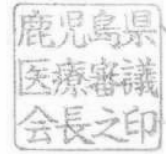 鹿児島県
医療審議
会長之印